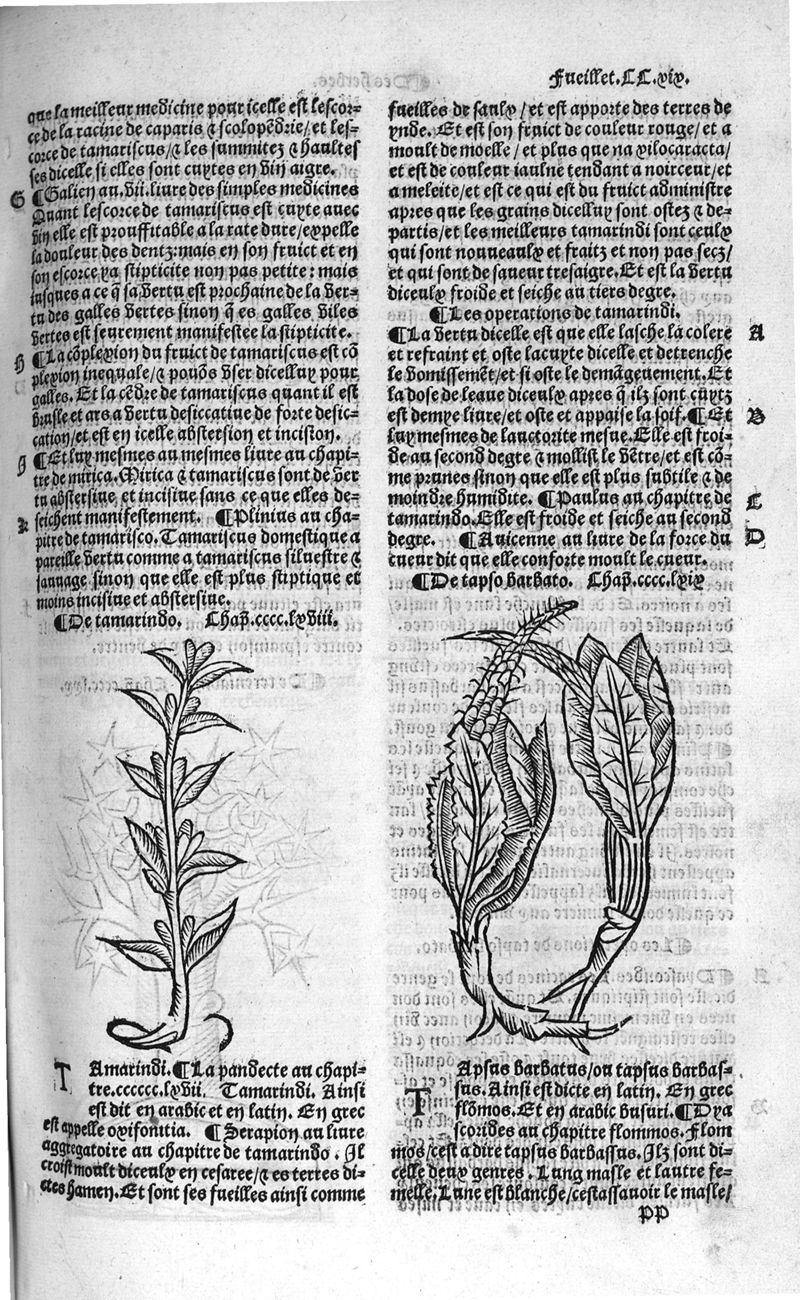 Fueillet.CC.xix.
que la meilleur medicine pour icelle est lescor-
ce de la racine de caparis ⁊ scolopẽdrie/et les-
corce de tamariscus/⁊ les summitez ⁊ haultes
ses dicelle si elles sont cuytes en vin aigre.
G ¶Galien au.vii.liure des simples medicines
Quant lescorce de tamariscus est cuyte auec
vin elle est prouffitable a la rate dure/expelle
la douleur des dentz:mais en son fruict et en
son escorce ya stipticite non pas petite: mais
iusques a ce q̃ sa vertu est prochaine de la ver-
tu des galles vertes sinon q̃ es galles viles
vertes est seurement manifestee la stipticite.
H ¶La cõplexion du fruict de tamariscus est cõ
plexion inequale/⁊ pouõs vser dicelluy pour
galles. Et la cẽdre de tamariscus quant il est
brusle et ars a vertu desiccatiue de forte desic-
cation/et est en icelle abstersion et incision.
J ¶Et luy mesmes au mesmes liure au chapi-
tre de mirica. Mirica ⁊ tamariscus sont de ver
tu abstersiue et incisiue sans ce que elles de-
K seichent manifestement. ¶Plinius au cha-
pitre de tamarisco. Tamariscus domestique a
pareille vertu comme a tamariscus siluestre ⁊
sauuage sinon que elle est plus stiptique et
moins incisiue et abstersiue.
¶De tamarindo. Chap̃.cccc.lxviii.
TAmarindi.¶La pandecte au chapi-
tre.cccccc.lxvii. Tamarindi. Ainsi
est dit en arabic et en latin. En grec
est appelle oxifonitia. ¶Serapion au liure
aggregatoire au chapitre de tamarindo. Il
croist moult diceulx en cesaree/⁊ es terres di-
ctes hamen. Et sont ses fueilles ainsi comme
fueilles de saulx/et est apporte des terres de
ynde. Et est son fruict de couleur rouge/et a
moult de moelle/et plus que na xilocaracta/
et est de couleur iaulne tendant a noirceur/et
a meleite/et est ce qui est du fruict administre
apres que les grains dicelluy sont ostez ⁊ de-
partis/et les meilleurs tamarindi sont ceulx
qui sont nouueaulx et fraitz et non pas secz/
et qui sont de saueur tresaigre. Et est la vertu
diceulx froide et seiche au tiers degre.
¶Les operations de tamarindi.
¶La vertu dicelle est que elle lasche la colere A
et refraint et oste lacuyte dicelle et detrenche
le vomissemẽt/et si oste le demãgeuement. Et
la dose de leaue diceulx apres q̃ ilz sont cuytz
est demye liure/et oste et appaise la soif.¶Et B
luy mesmes de lauctorite mesue. Elle est froi-
de au second degre ⁊ mollist le vẽtre/et est cõ-
me prunes sinon que elle est plus subtile ⁊ de
moindre humidite. ¶Paulus au chapitre de C
tamarindo. Elle est froide et seiche au second
degre. ¶Auicenne au liure de la force du D
cueur dit que elle conforte moult le cueur.
¶De tapso barbato. Chap̃.cccc.lxix
TApsus barbatus/ou tapsus barbas-
sus. Ainsi est dicte en latin. En grec
flõmos. Et en arabic busuri.¶Dya
scorides au chapitre flommos. Flom
mos/cest a dire tapsus barbassus. Ilz sont di-
celle deux genres. Lung masle et lautre fe-
melle. Lune est blanche/cestassauoir le masle/
pp